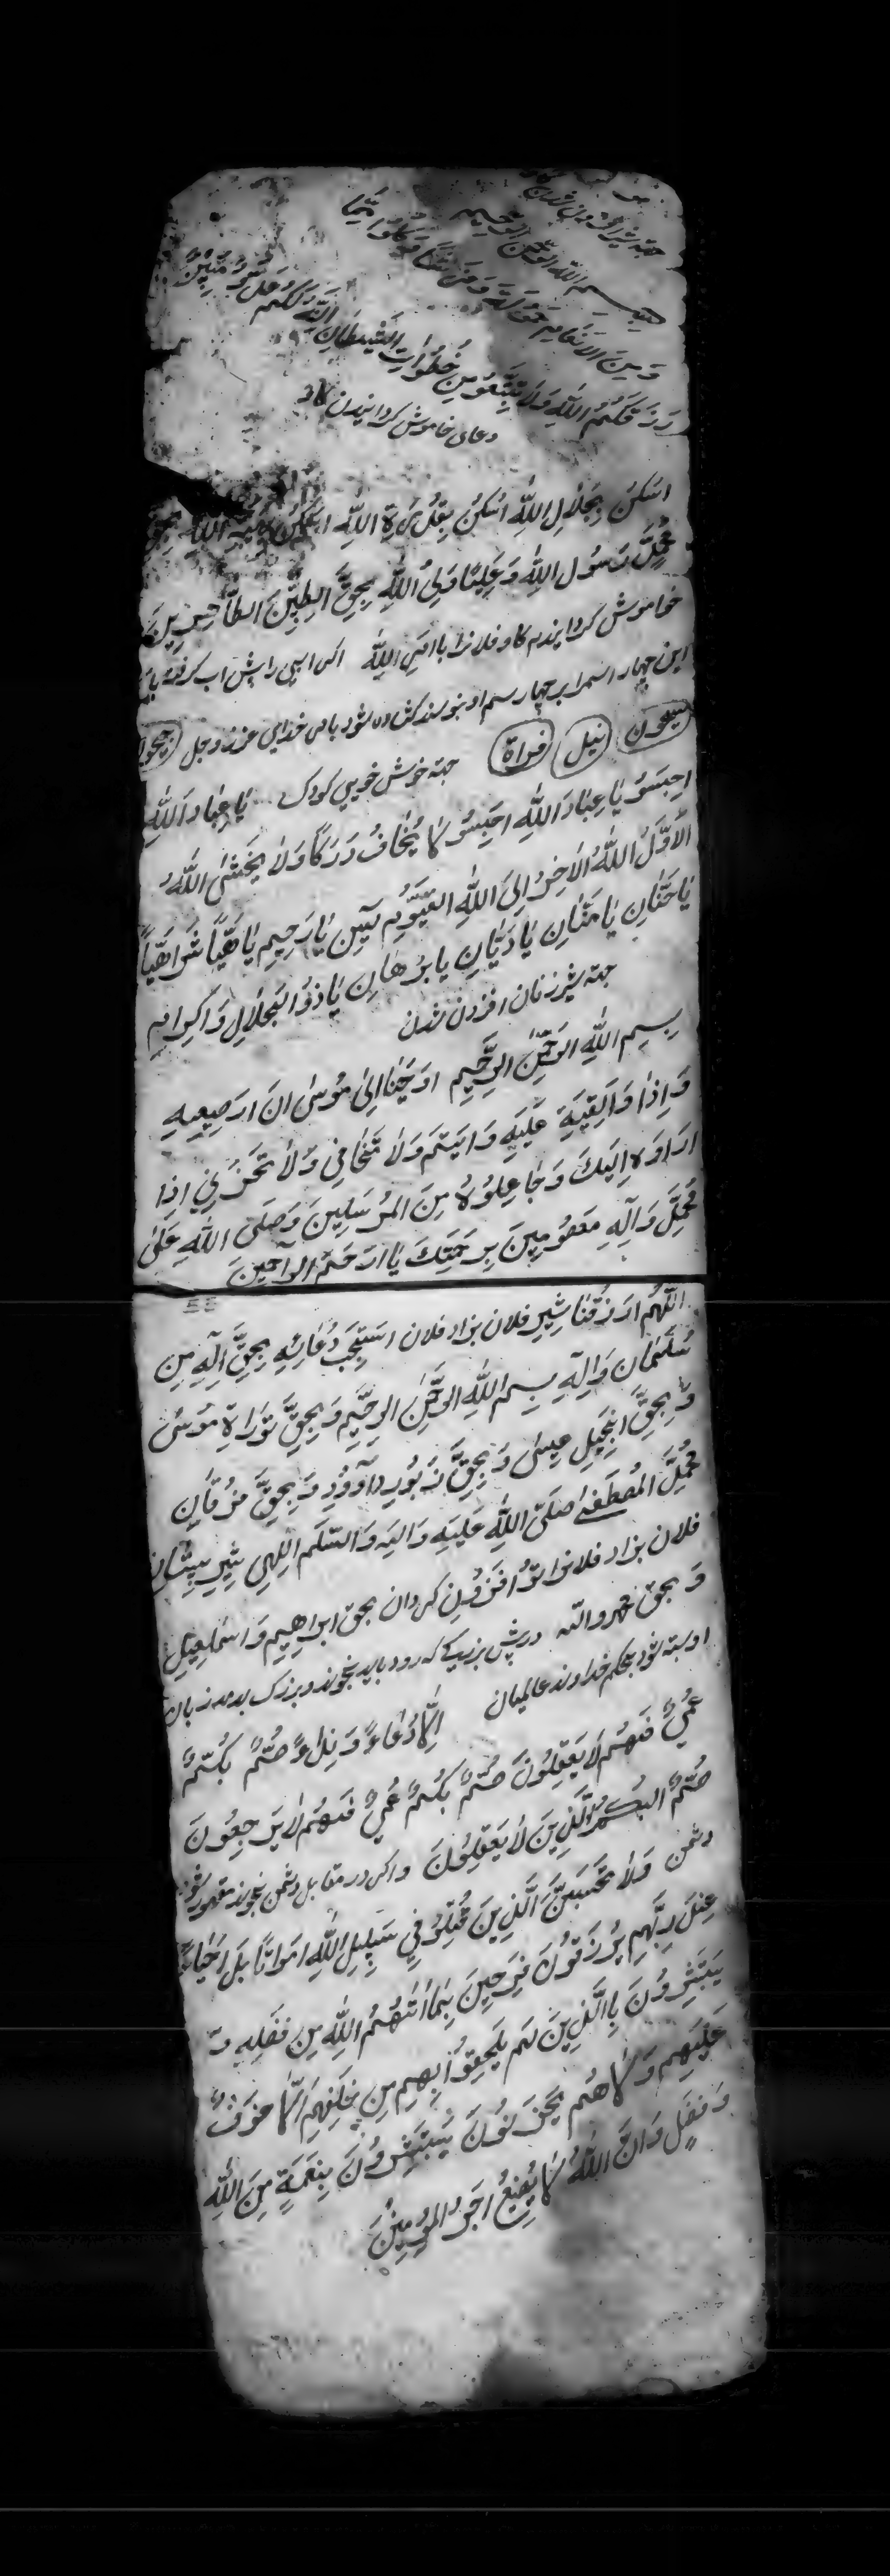 جهة شیر افزودن شدن کاو
بسم الله الرحمن الرحیم
وَمِنَ الاَنعَامِ حَمُولَةً وَفَرشًا کُلُوا مِمَّا
رَزَقَکُمُ اللهُ وَلا تَتَّبِعُو مِن خُطُوَاتِ الشَّیطَانِ اِنَّهُ لَکُم عَدُوٌّ مُبِینٌ
دعای خاموش کردانیدن کاو
اسکن بِجَلالِ اللهِ اسکُن بِقُدرَةِ اللهِ اسکُن اللهِ بحقِّ
مُحمدٍ رَسُول اللهِ وَعَلِیًّا وَلِیُ اللهِ بِحَقِّ الطیِّبِینَ الطَّاهِرِینَ
خاموش کردانیدم کاو فلانرا باامرِ اللهِ اکر اسپی را پش اب کرفته باشد
این چهار اسم را بر چهار سم او بنویسد کشاده شود بامر خدای عزّ وجل جیحون
سیحون نیل فراة جهة خوش خویی کودک یا عِبَادَ اللهِ
احبِسُو یَا عِبَادَ اللهِ احبِسُو لا یُخَافُ دَرَکًا وَلا یَخشٰی اللهُ
الاوَّلُ اللهُ الاخِرُ اِلیَ اللهِ القَیُّومِ آمین یا رَحِیمِ یا هَیًّا شَرَاهَیًّا
یَا حَنَّانِ یَا مَنَّانِ یَا دَیَّانِ یا بُرهَانِ یَا ذوُالجَلالِ وَاکِرامِ
جهة شیر زنان افزدن شدن
بِسمِ اللهِ الرَحمٰنِ الرَّحِیمِ اوحَینَا اِلیٰ مُوسیٰ ان ارضِعِیهِ
وَاِذا وَالقِیَهِ عَلَیهِ وَالیَمَّ وَلا تَخَافِی وَلا تَحزَنِی اِذا
ارَاوه اِلَیکَ وَجَاعِلُوهُ مِنَ المُرسَلِینَ وَصَلَی اللهِ عَلیٰ
مُحمدٍ وَآلِهِ مَعصُومِینَ بِرَحمَتِکَ یَا ارحَمَ الرَاحِمینَ
اللّهُم ارزُقنا شِیرِ فلان بزاد فلان استَجِب دُعَائِهِ بِحَقِّ اِلٰهِ مِن
سُلَیمَان وَاِلِه بِسمِ اللهِ الرَحمٰنِ الرحِیمِ وَبِحَقِّ تَورَاةِ مُوسیٰ
وَبِحَقِّ انجِیلِ عِیسیٰ وَبِحَقِّ زَبُورِ دَاوُودِ وَبِحَقِّ فرُقَانِ
مُحَمّدِ المُصطَفیٰ صَلَی اللهُ عَلَیهِ وَالِه وَالسّلَم اللهی شیرِ پِستان
فلان بزاد فلانرا تو افزُونِ کردان بحق ابراهیمِ وَاسمَاعِیلِ
وَبحق محمد والله درپش بزرکی که رود باید بخوند و بزرک بدمد زبان
او بسته شود بحکم خداوند عالمیان اِلّا دُعَاءً وَنِدَاءً صُمٌّ بُکمٌ
عُمیٌ فَهُم لا یَعقِلُونَ صُمٌّ بُکمٌ عُمیٌ فَهُم لا یَرجِعُونَ
صُمٌّ البُکمُ الَّذِینَ لا یَعقِلُونَ واکر در مقابل دشمن بخوند مقهور شود
دشمن وَلا تَحسَبَنَّ الَّذِینَ قُتِلُو فِی سَبِیلِ اللهِ اموَاتًا بَل احیَاءٌ
عِندَ رَبِّهِم یُرزَقُونَ فَرِحِینَ بِمَا اٰتٰهُمُ اللهُ مِن فَضلِهِ وَ
یَستَبشِرُونَ بِاالَّذِینَ لَم یَلحَقُو بِهِم مِن خَلفِهِم الّا خَوفٌ
عَلَیهِم وَلا هُم یَحزَنُونَ یَستَبشِرُونَ بِنِعمَةٍ مِنَ اللهِ
وَفَضلٍ وَانَّ اللهُ لا یُضِیعُ اجرُ المُؤمِنینَ